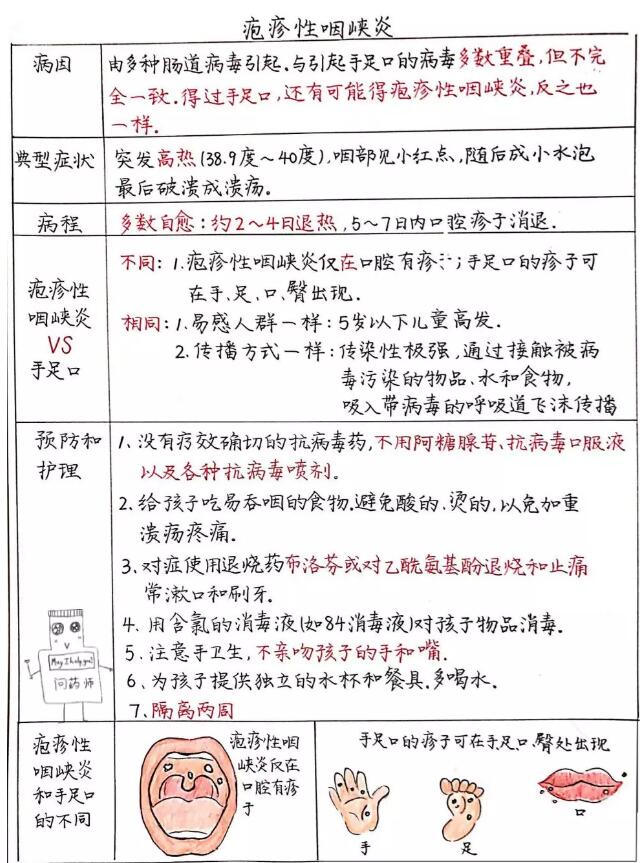 疱疹性咽峡炎
病因
由多种肠道病毒引起.与引起手足口的病毒多数重叠,但不完
全一致.得过手足口,还有可能得疱疹性咽峡炎,反之也
一样.
典型症状
突发高热(38.9度~40度),咽部见小红点,随后成小水泡
最后破溃成溃疡.
病程
多数自愈:约2~4日退热,5~7日内口腔疹子消退.
疱疹性
咽峡炎
VS
手足口
不同:1.疱疹性咽峡炎仅在口腔有疹子;手足口的疹子可
在手、足、口、臀出现.
相同:1.易感人群一样:5岁以下儿童高发.
2.传播方式一样:传染性极强,通过接触被病
毒污染的物品、水和食物,
吸入带病毒的呼吸道飞沫传播
预防和
护理
1、没有疗效确切的抗病毒药,不用阿糖腺苷、抗病毒口服液
以及各种抗病毒喷剂。
2.给孩子吃易吞咽的食物.避免酸的、烫的,以免加重
溃疡疼痛.
3、对症使用退烧药布洛芬或对乙酰氨基酚退烧和止痛
常漱口和刷牙.
4.用含氯的消毒液(如84消毒液)对孩子物品消毒.
5.注意手卫生,不亲吻孩子的手和嘴.
6.为孩子提供独立的水杯和餐具.多喝水.
7.隔离两周
May I help you?
问药师
疱疹性
咽峡炎
和手足口
的不同
疱疹性咽
峡炎仅在
口腔有疹
子
手足口的疹子可在手足口、臀处出现
手
足
口